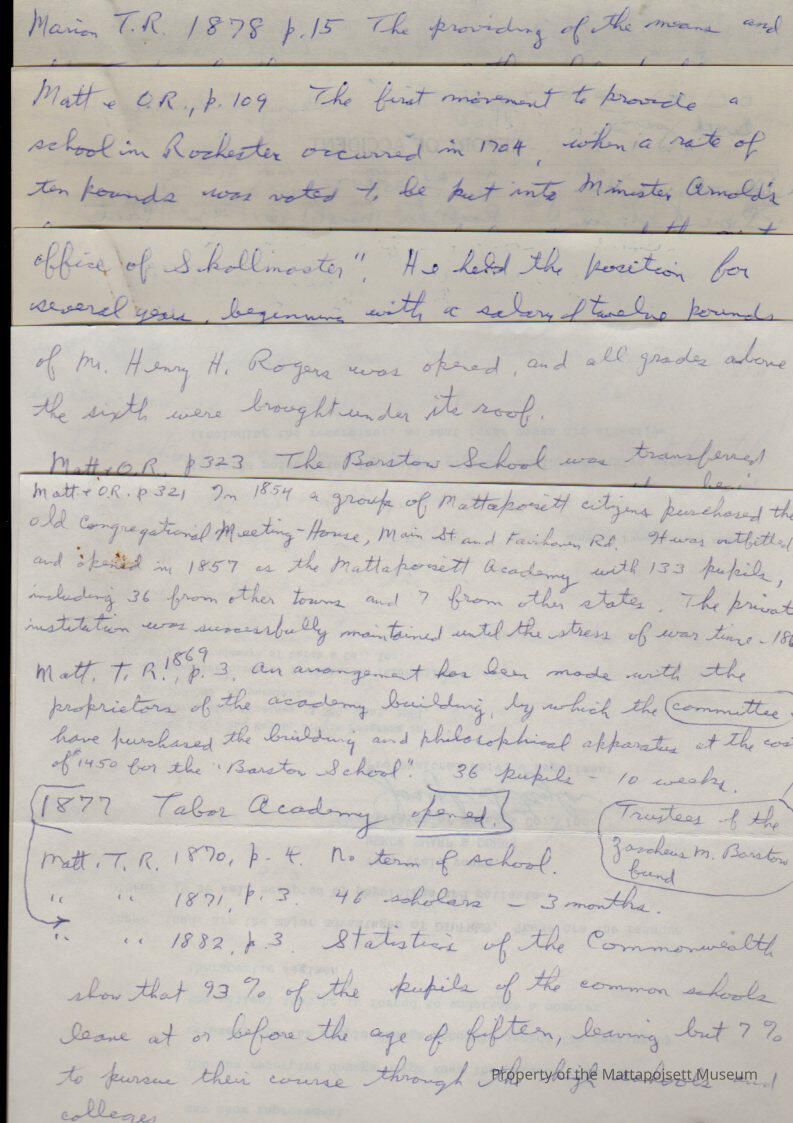 Marion T.R. 1878 p.15 The providing of the means and
Matt & O.R., p. 109 The first movement to provide a
school in Rochester occurred in 1704, when a rate of
ten pounds was voted to be put into Minister Arnold's
office of Skollmaster". He held the position for
several years, beginning with a salary of twelve pounds
of Mr. Henry H. Rogers was opened, and all grades above
the sixth were brought under its roof.
Matt & O.R. p 323 The Barstow School was transferred
Matt. & O.R. p 321 In 1854 a group of Mattapoisett citizens purchased the
old Congregational Meeting-House, Main St and Fairhaven Rd. It was outfitted
and opened in 1857 as the Mattapoisett Academy with 133 pupils,
including 36 from other towns and 7 from other states. The private
institution was successfully maintained until the stress of war time - 186
Matt. T.R. 1869, p. 3. An arrangement has been made with the
proprietors of the academy building, by which the committee
have purchased the building and philosophical apparatus at the cos
of $1450 for the "Barstow School". 36 pupils - 10 weeks.
1877 Tabor Academy opened.
Trustees of the
Zaccheus M. Barstow
fund
Matt. T.R. 1870, p. 4. No term of school.
" " 1871, p. 3. 46 scholars - 3 months.
" " 1882, p. 3. Statistics of the Commonwealth
show that 93% of the pupils of the common schools
leave at or before the age of fifteen, leaving but 7%
to pursue their course through the high schools and
colleges
Property of the Mattapoisett Museum